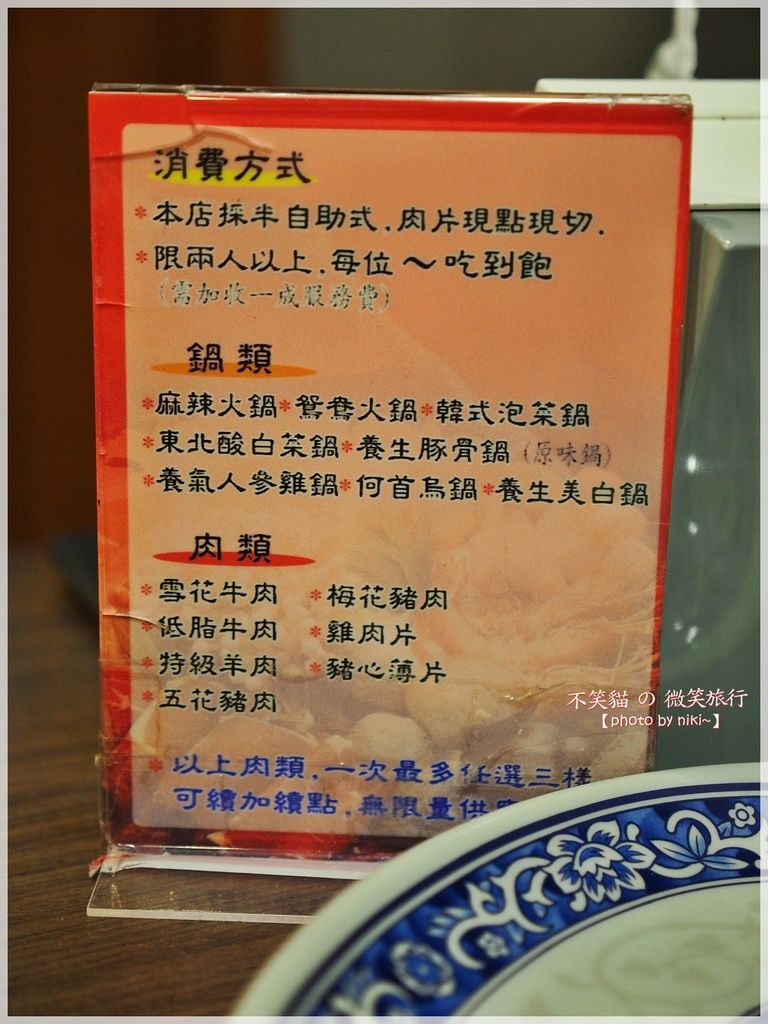 消費方式
*本店採半自助式,肉片現點現切.
*限兩人以上,每位～吃到飽
(需加收一成服務費)
鍋類
*麻辣火鍋*鴛鴦火鍋*韓式泡菜鍋
*東北酸白菜鍋*養生豚骨鍋(原味鍋)
*養氣人參雞鍋*何首烏鍋*養生美白鍋
肉類
*雪花牛肉 *梅花豬肉
*低脂牛肉 *雞肉片
*特級羊肉 *豬心薄片
*五花豬肉
*以上肉類,一次最多任選三樣
可續加續點,無限量供
不笑貓 の 微笑旅行
【photo by niki~】